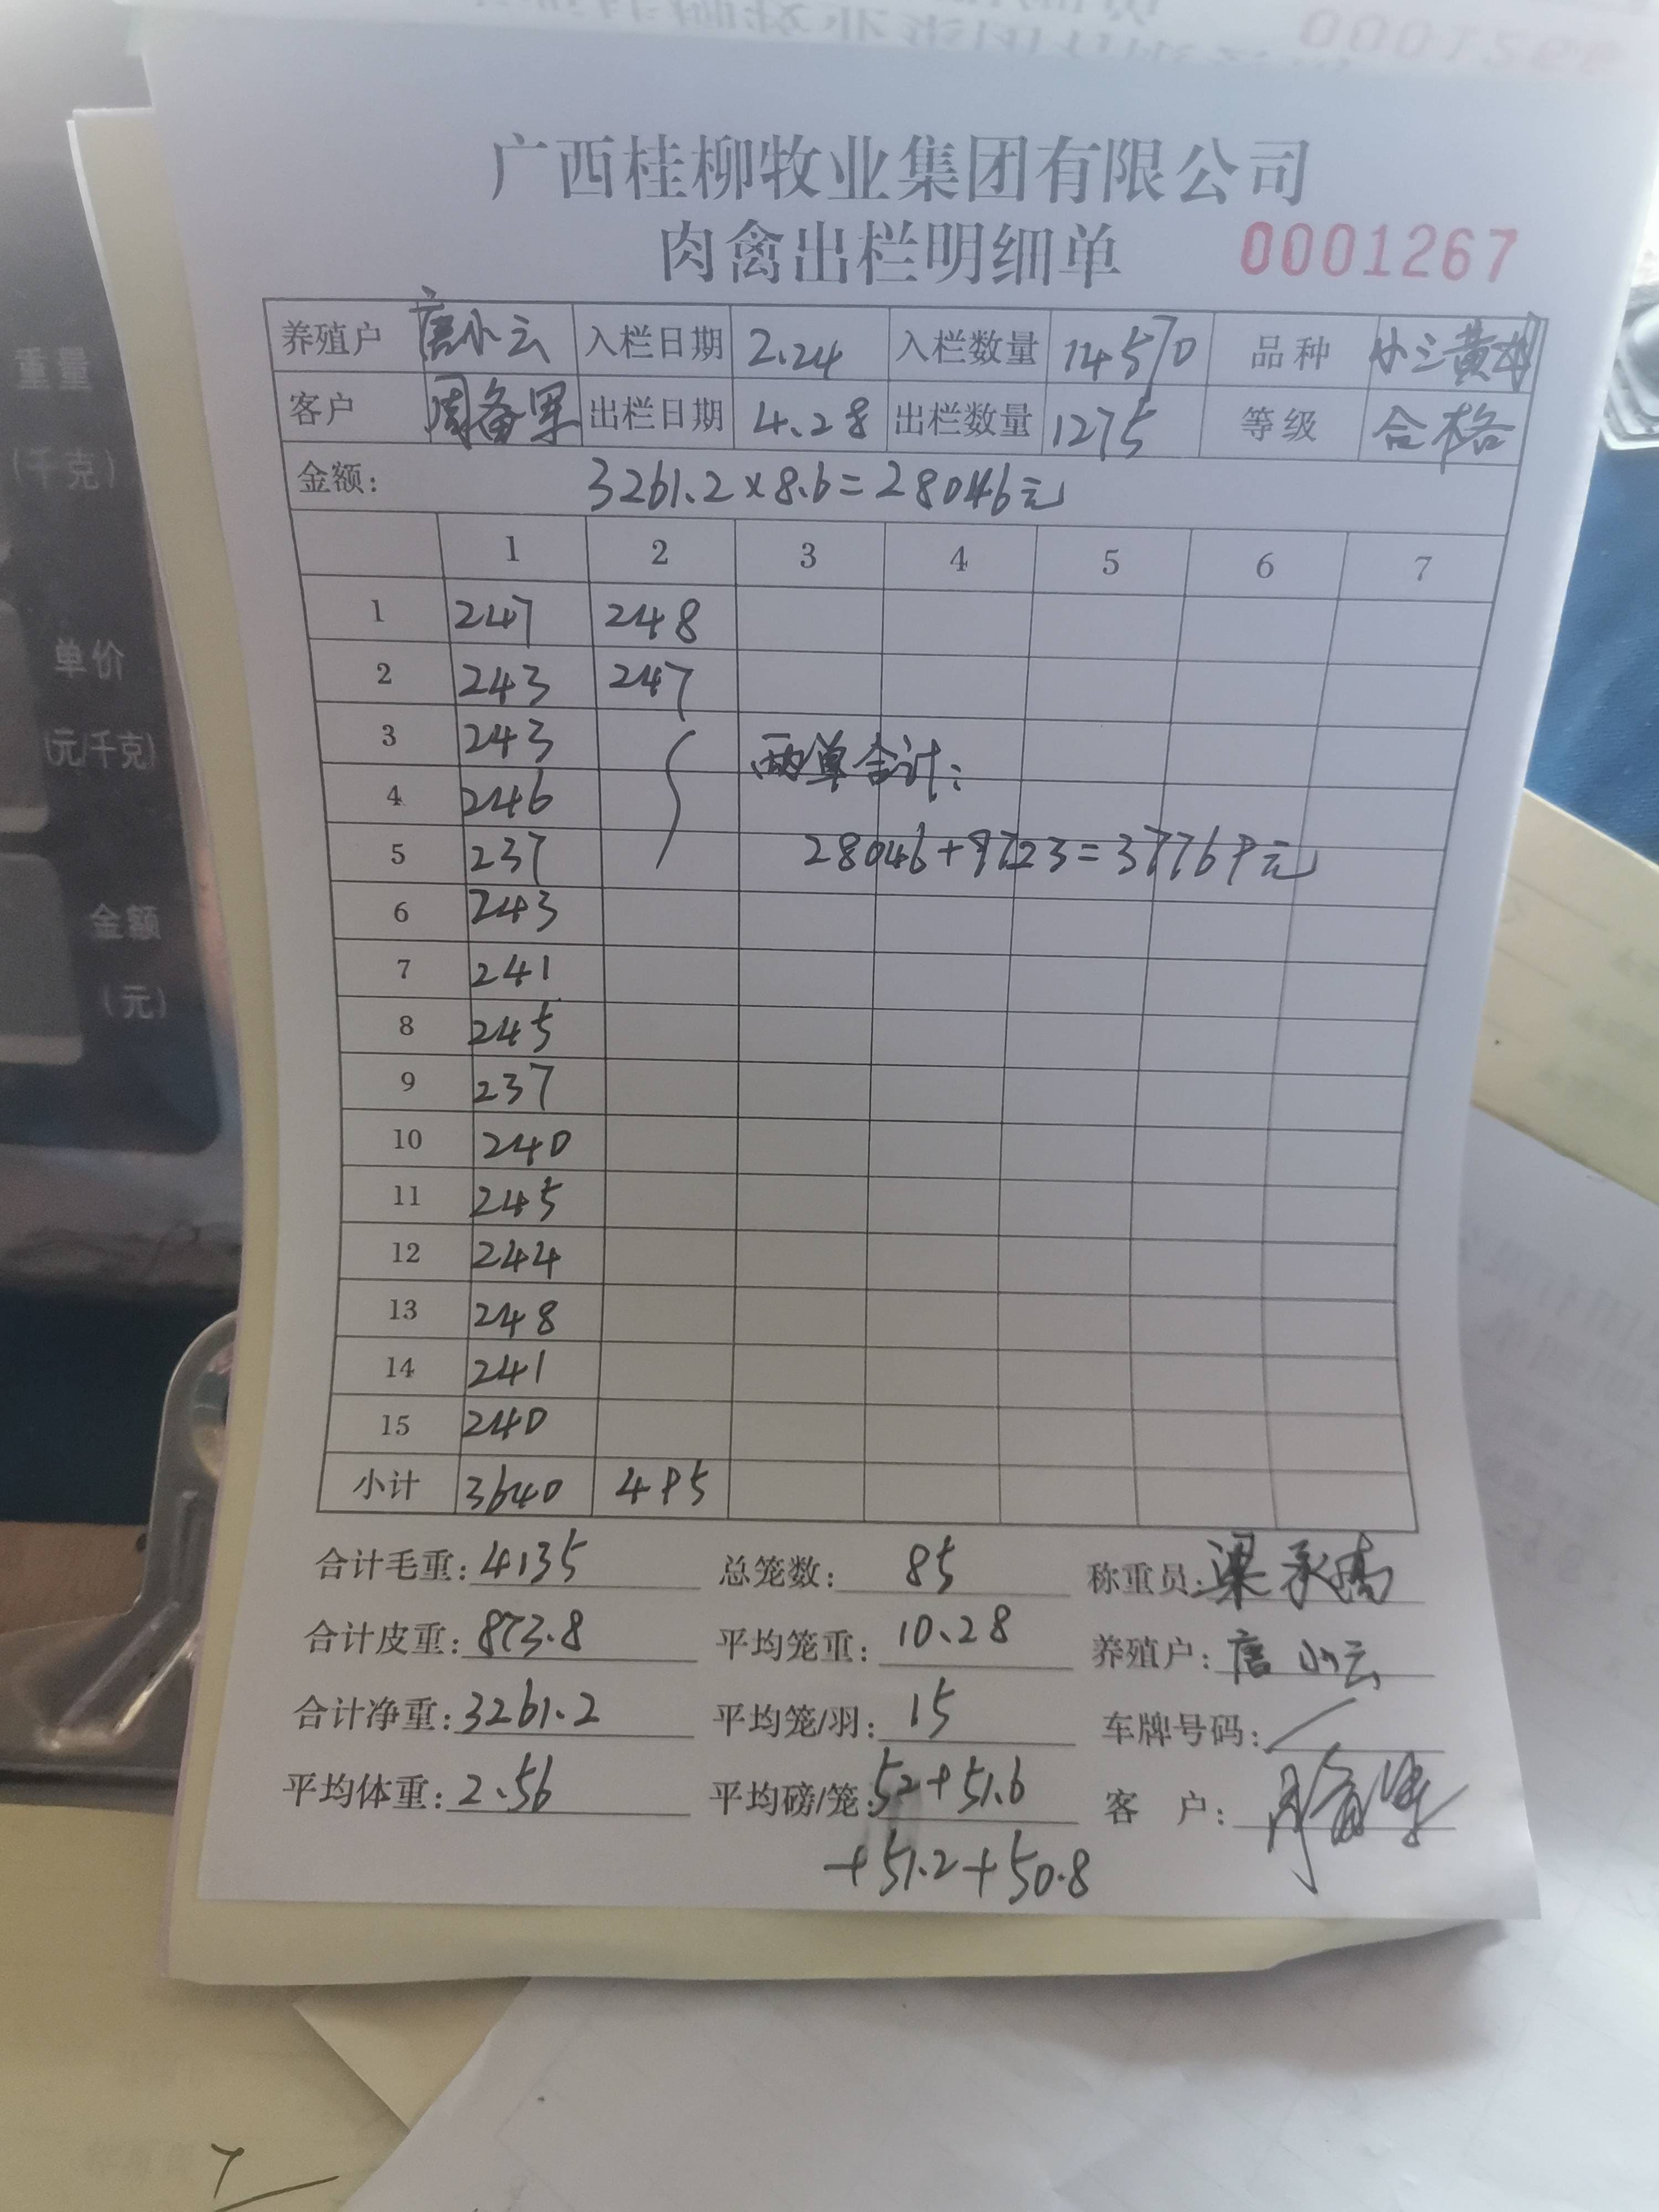 广西桂柳牧业集团有限公司
肉禽出栏明细单 0001267
养殖户 唐小云 入栏日期 2.24 入栏数量 14570 品种 小三黄
客户 周备军 出栏日期 4.28 出栏数量 1275 等级 合格
金额: 3261.2×8.6=28046元
1 2 3 4 5 6 7
1 247 248
2 243 247
3 243 两单合计:
4 246
5 237 28046+9723=37769元
6 243
7 241
8 245
9 237
10 240
11 245
12 244
13 248
14 241
15 240
小计 3640 495
合计毛重: 4135 总笼数: 85 称重员: 梁承
合计皮重: 873.8 平均笼重: 10.28 养殖户: 唐小云
合计净重: 3261.2 平均笼/羽: 15 车牌号码: /
平均体重: 2.56 平均磅/笼: 52+51.6 客 户:
+51.2+50.8
重量
(千克)
单价
(元/千克)
金额
(元)
0001268